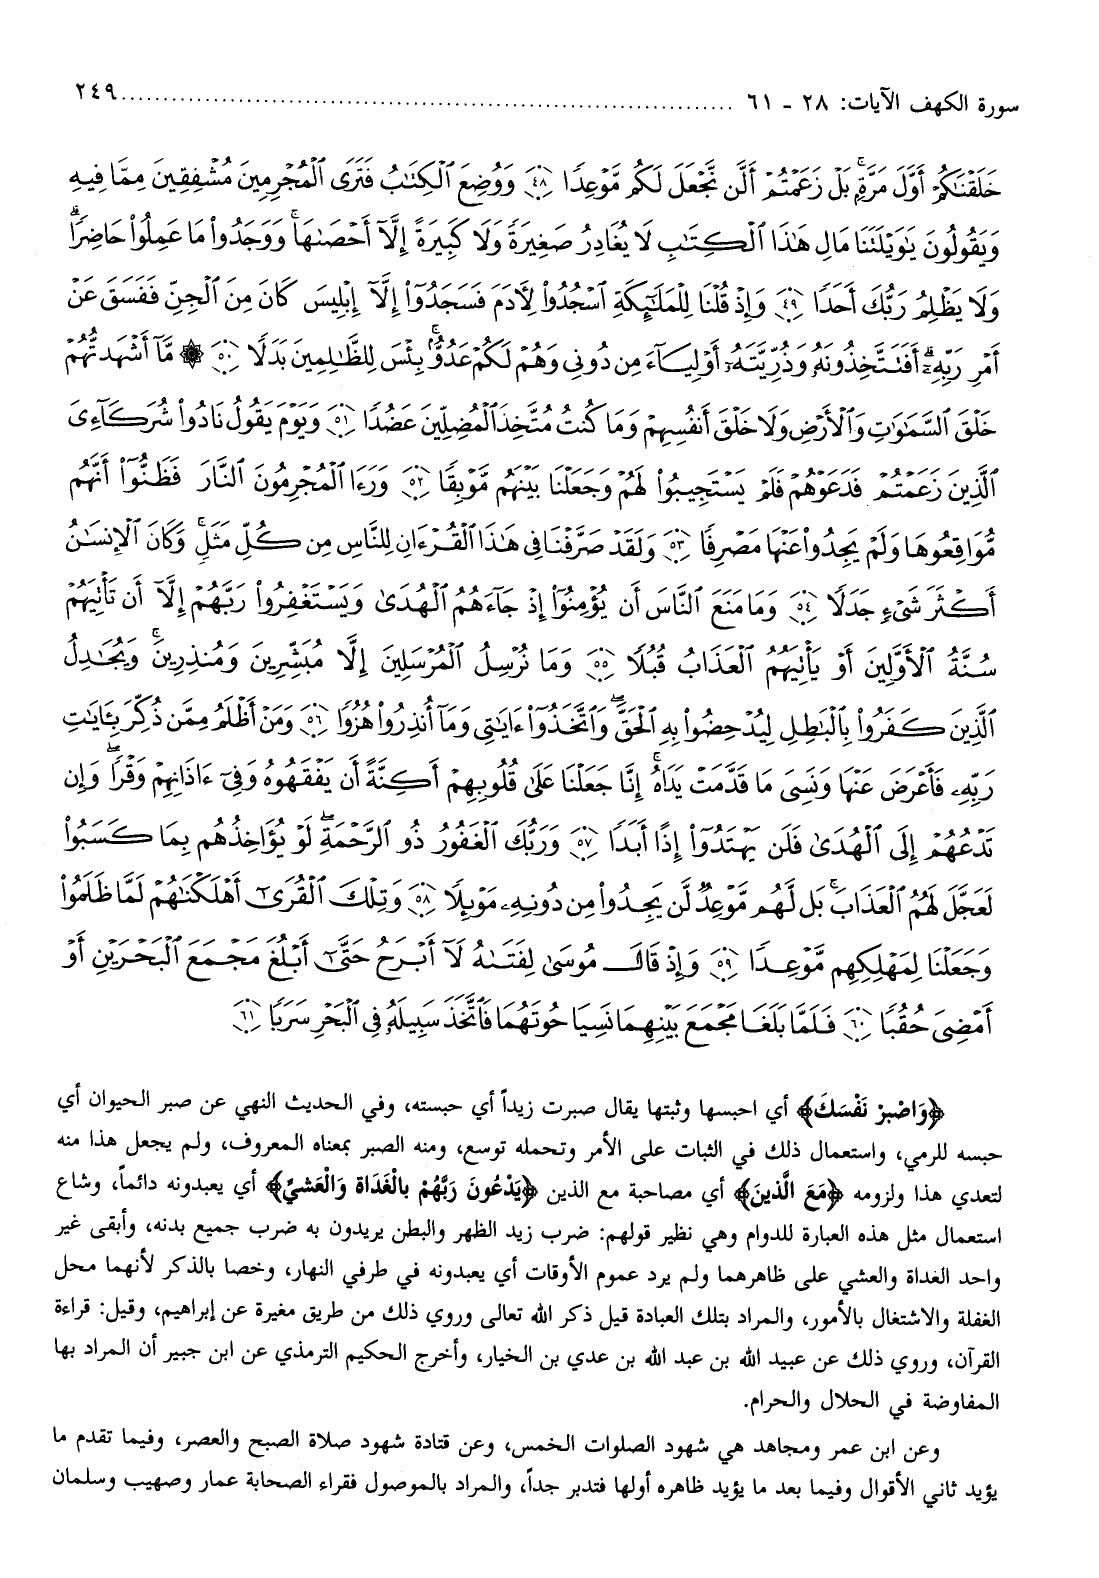 سورة الكهف الآيات: ٢٨ - ٦١ ........................................................................ ٢٤٩
خَلَقْنَاكُمْ أَوَّلَ مَرَّةٍ بَلْ زَعَمْتُمْ أَلَّن نَّجْعَلَ لَكُم مَّوْعِدًا ﴿٤٨﴾ وَوُضِعَ الْكِتَابُ فَتَرَى الْمُجْرِمِينَ مُشْفِقِينَ مِمَّا فِيهِ
وَيَقُولُونَ يَاوَيْلَتَنَا مَالِ هَٰذَا الْكِتَابِ لَا يُغَادِرُ صَغِيرَةً وَلَا كَبِيرَةً إِلَّا أَحْصَاهَا وَوَجَدُوا مَا عَمِلُوا حَاضِرًا
وَلَا يَظْلِمُ رَبُّكَ أَحَدًا ﴿٤٩﴾ وَإِذْ قُلْنَا لِلْمَلَائِكَةِ اسْجُدُوا لِآدَمَ فَسَجَدُوا إِلَّا إِبْلِيسَ كَانَ مِنَ الْجِنِّ فَفَسَقَ عَنْ
أَمْرِ رَبِّهِ أَفَتَتَّخِذُونَهُ وَذُرِّيَّتَهُ أَوْلِيَاءَ مِن دُونِي وَهُمْ لَكُمْ عَدُوٌّ بِئْسَ لِلظَّالِمِينَ بَدَلًا ﴿٥٠﴾ ۞ مَّا أَشْهَدتُّهُمْ
خَلْقَ السَّمَاوَاتِ وَالْأَرْضِ وَلَا خَلْقَ أَنفُسِهِمْ وَمَا كُنتُ مُتَّخِذَ الْمُضِلِّينَ عَضُدًا ﴿٥١﴾ وَيَوْمَ يَقُولُ نَادُوا شُرَكَاءِيَ
الَّذِينَ زَعَمْتُمْ فَدَعَوْهُمْ فَلَمْ يَسْتَجِيبُوا لَهُمْ وَجَعَلْنَا بَيْنَهُم مَّوْبِقًا ﴿٥٢﴾ وَرَءَا الْمُجْرِمُونَ النَّارَ فَظَنُّوا أَنَّهُم
مُّوَاقِعُوهَا وَلَمْ يَجِدُوا عَنْهَا مَصْرِفًا ﴿٥٣﴾ وَلَقَدْ صَرَّفْنَا فِي هَٰذَا الْقُرْءَانِ لِلنَّاسِ مِن كُلِّ مَثَلٍ وَكَانَ الْإِنسَانُ
أَكْثَرَ شَيْءٍ جَدَلًا ﴿٥٤﴾ وَمَا مَنَعَ النَّاسَ أَن يُؤْمِنُوا إِذْ جَاءَهُمُ الْهُدَىٰ وَيَسْتَغْفِرُوا رَبَّهُمْ إِلَّا أَن تَأْتِيَهُمْ
سُنَّةُ الْأَوَّلِينَ أَوْ يَأْتِيَهُمُ الْعَذَابُ قُبُلًا ﴿٥٥﴾ وَمَا نُرْسِلُ الْمُرْسَلِينَ إِلَّا مُبَشِّرِينَ وَمُنذِرِينَ وَيُجَادِلُ
الَّذِينَ كَفَرُوا بِالْبَاطِلِ لِيُدْحِضُوا بِهِ الْحَقَّ وَاتَّخَذُوا ءَايَاتِي وَمَا أُنذِرُوا هُزُوًا ﴿٥٦﴾ وَمَنْ أَظْلَمُ مِمَّن ذُكِّرَ بِئَايَاتِ
رَبِّهِ فَأَعْرَضَ عَنْهَا وَنَسِيَ مَا قَدَّمَتْ يَدَاهُ إِنَّا جَعَلْنَا عَلَىٰ قُلُوبِهِمْ أَكِنَّةً أَن يَفْقَهُوهُ وَفِي ءَاذَانِهِمْ وَقْرًا وَإِن
تَدْعُهُمْ إِلَى الْهُدَىٰ فَلَن يَهْتَدُوا إِذًا أَبَدًا ﴿٥٧﴾ وَرَبُّكَ الْغَفُورُ ذُو الرَّحْمَةِ لَوْ يُؤَاخِذُهُم بِمَا كَسَبُوا
لَعَجَّلَ لَهُمُ الْعَذَابَ بَل لَّهُم مَّوْعِدٌ لَّن يَجِدُوا مِن دُونِهِ مَوْئِلًا ﴿٥٨﴾ وَتِلْكَ الْقُرَىٰ أَهْلَكْنَاهُمْ لَمَّا ظَلَمُوا
وَجَعَلْنَا لِمَهْلِكِهِم مَّوْعِدًا ﴿٥٩﴾ وَإِذْ قَالَ مُوسَىٰ لِفَتَاهُ لَا أَبْرَحُ حَتَّىٰ أَبْلُغَ مَجْمَعَ الْبَحْرَيْنِ أَوْ
أَمْضِيَ حُقُبًا ﴿٦٠﴾ فَلَمَّا بَلَغَا مَجْمَعَ بَيْنِهِمَا نَسِيَا حُوتَهُمَا فَاتَّخَذَ سَبِيلَهُ فِي الْبَحْرِ سَرَبًا ﴿٦١﴾
﴿وَاصْبِرْ نَفْسَكَ﴾ أي احبسها وثبتها يقال صبرت زيداً أي حبسته، وفي الحديث النهي عن صبر الحيوان أي
حبسه للرمي، واستعمال ذلك في الثبات على الأمر وتحمله توسع، ومنه الصبر بمعناه المعروف، ولم يجعل هذا منه
لتعدي هذا ولزومه ﴿مَعَ الَّذينَ﴾ أي مصاحبة مع الذين ﴿يَدْعُونَ رَبَّهُمْ بالْغَدَاة وَالْعَشيِّ﴾ أي يعبدونه دائماً، وشاع
استعمال مثل هذه العبارة للدوام وهي نظير قولهم: ضرب زيد الظهر والبطن يريدون به ضرب جميع بدنه، وأبقى غير
واحد الغداة والعشي على ظاهرهما ولم يرد عموم الأوقات أي يعبدونه في طرفي النهار، وخصا بالذكر لأنهما محل
الغفلة والاشتغال بالأمور، والمراد بتلك العبادة قيل ذكر الله تعالى وروي ذلك من طريق مغيرة عن إبراهيم، وقيل: قراءة
القرآن، وروي ذلك عن عبيد الله بن عبد الله بن عدي بن الخيار، وأخرج الحكيم الترمذي عن ابن جبير أن المراد بها
المفاوضة في الحلال والحرام.
وعن ابن عمر ومجاهد هي شهود الصلوات الخمس، وعن قتادة شهود صلاة الصبح والعصر، وفيما تقدم ما
يؤيد ثاني الأقوال وفيما بعد ما يؤيد ظاهره أولها فتدبر جداً، والمراد بالموصول فقراء الصحابة عمار وصهيب وسلمان